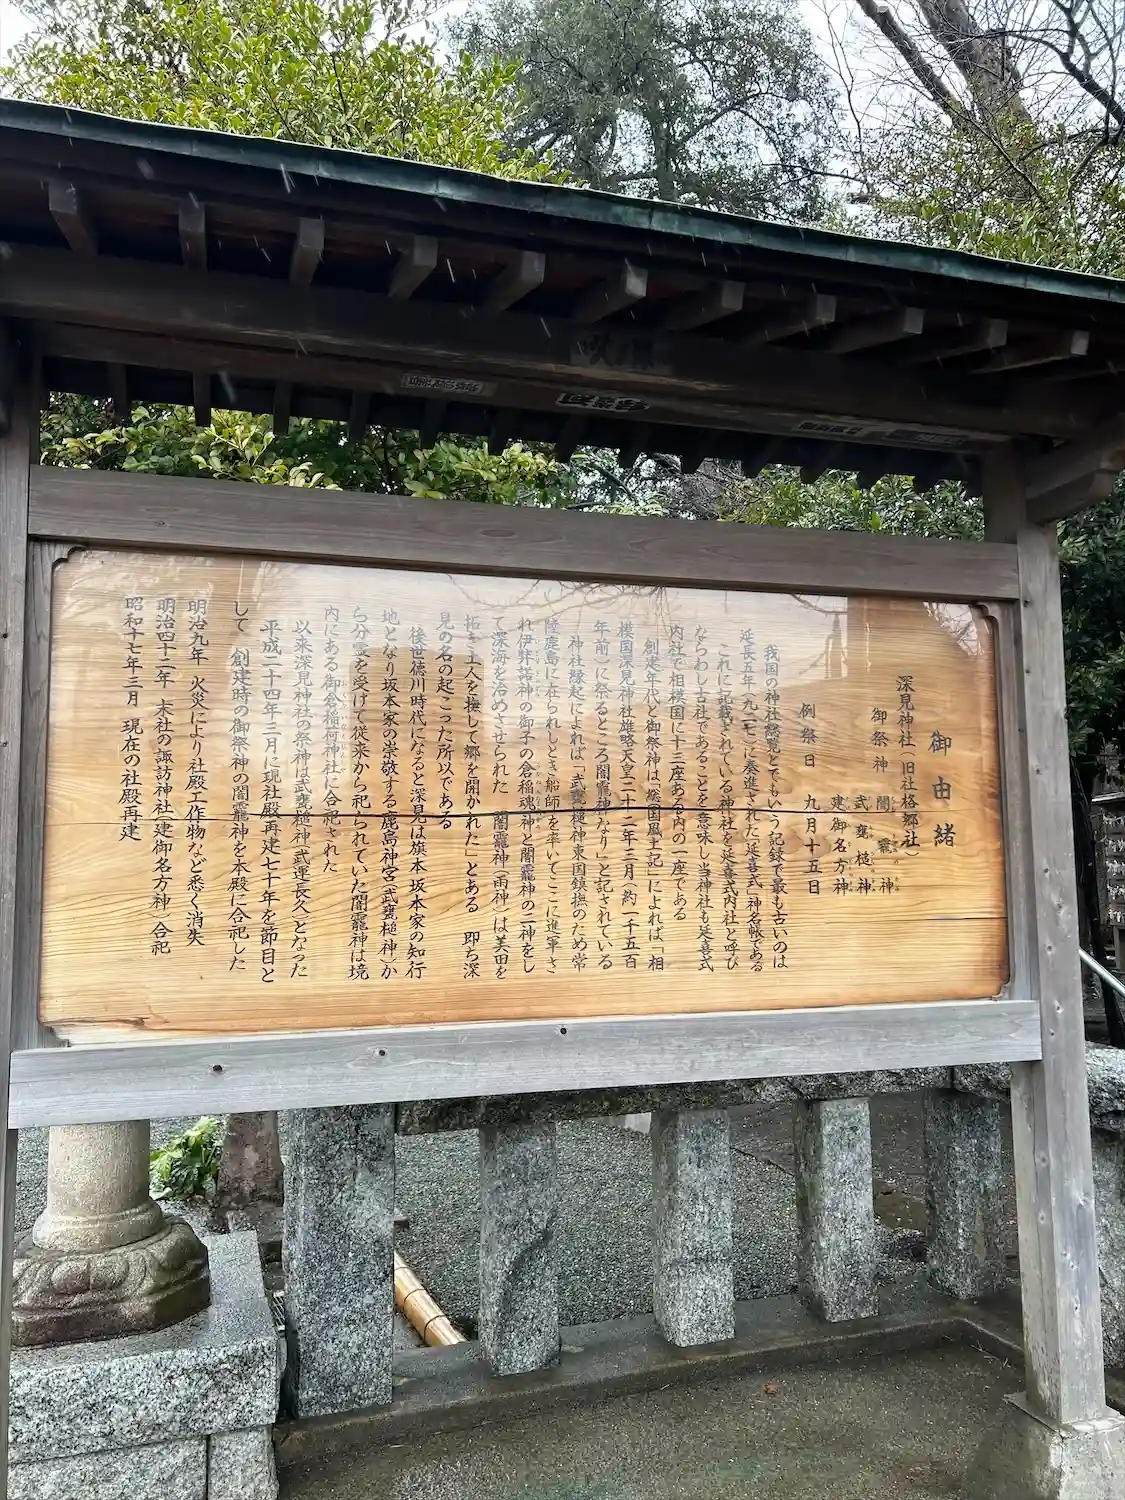 御由緒
深見神社(旧社格郷社)
御祭神 闇龗神
武甕槌神
建御名方神
例祭日 九月十五日
我国の神社総覧とでもいう記録で最も古いのは
延長五年(九二七)に奏進された「延喜式」神名帳である
これに記載されている神社を延喜式内社と呼び
ならわし古社であることを意味し当神社も延喜式
内社で相模国に十三座ある内の一座である
創建年代と御祭神は、「総国風土記」によれば「相
模国深見神社雄略天皇二十二年三月(約一千五百
年前)に祭るところ闇龗神なり」と記されている
神社縁起によれば「武甕槌神東国鎮撫のため常
陸鹿島に在られしとき船師を率いてここに進軍さ
れ伊弉諾神の御子の倉稲魂神と闇龗神の二神をし
て深海を治めさせられた 闇龗神(雨神)は美田を
拓き土人を撫して郷を開かれた」とある 即ち深
見の名の起こった所以である
後世徳川時代になると深見は旗本坂本家の知行
地となり坂本家の崇敬する鹿島神宮(武甕槌神)か
ら分霊を受けて従来から祀られていた闇龗神は境
内にある御倉稲荷神社に合祀された
以来深見神社の祭神は武甕槌神(武運長久)となった
平成二十四年三月に現社殿再建七十年を節目と
して 創建時の御祭神の闇龗神を本殿に合祀した
明治九年 火災により社殿工作物など悉く消失
明治四十二年 末社の諏訪神社(建御名方神)合祀
昭和十七年三月 現在の社殿再建